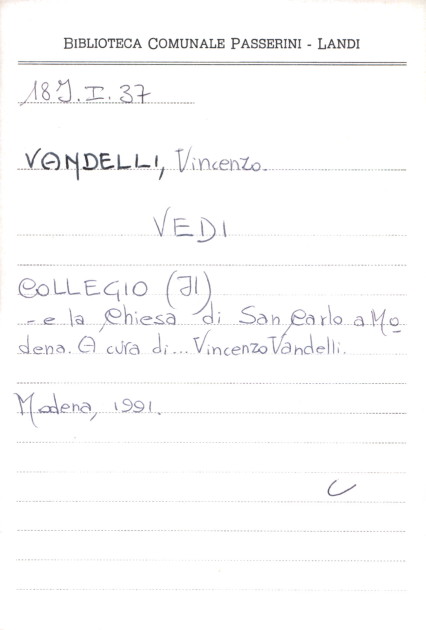 BIBLIOTECA COMUNALE PASSERINI - LANDI
18J.I.37
VANDELLI, Vincenzo.
VEDI
COLLEGIO (Il)
- e la Chiesa di San Carlo a Mo
dena. A cura di... Vincenzo Vandelli.
Modena, 1991.
C